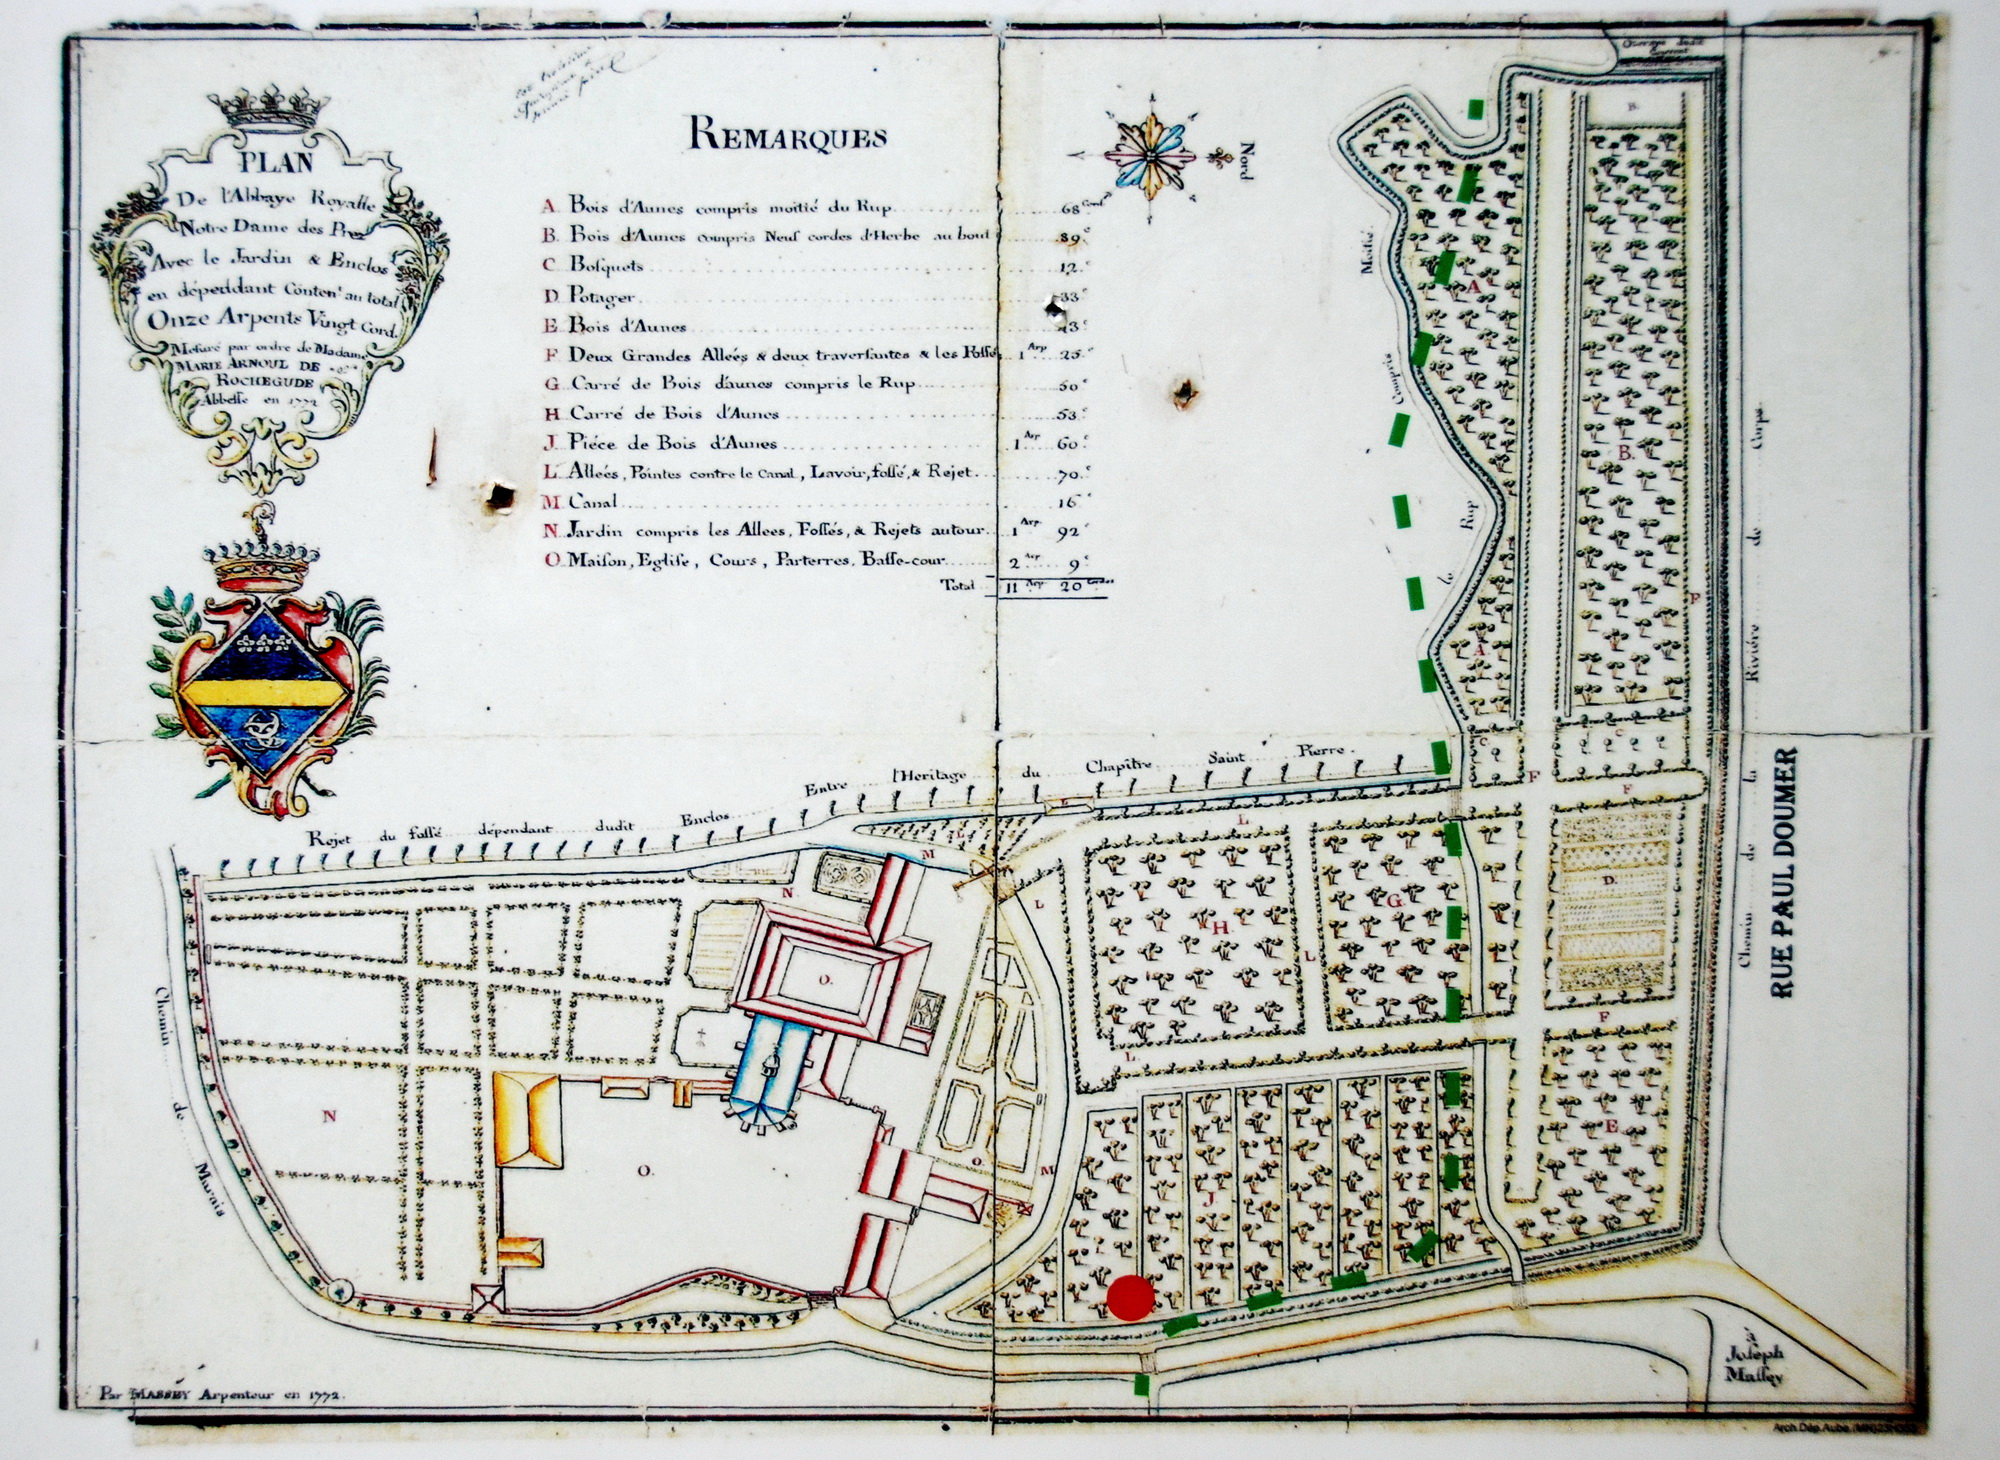 PLAN
De l'Abbaye Royalle
Notre Dame des Prez
Avec le Jardin & Enclos
en dépendant Conten.t au total
Onze Arpents Vingt Cord.
Mesuré par ordre de Madame
MARIE ARNOUL DE
ROCHEGUDE
Abbesse en 1772
REMARQUES
A Bois d'Aunes compris moitié du Rup 68 Cord.
B Bois d'Aunes compris Neuf cordes d'Herbe au bout 89 c
C Bosquets 12 c
D Potager 33 c
E Bois d'Aunes 43 c
F Deux Grandes Alleés & deux traversantes & les Fossés 1 Arp 25 c
G Carré de Bois d'aunes compris le Rup 50 c
H Carré de Bois d'Aunes 53 c
J Piéce de Bois d'Aunes 1 Arp 60 c
L Alleés, Pointes contre le Canal, Lavoir, fossé, & Rejet 70 c
M Canal 16 c
N Jardin compris les Allees, Fossés, & Rejets autour 1 Arp. 92 c
O Maison, Eglise, Cours, Parterres, Basse-cour 2 Arp 9 c
Total 11 Arp 20 Cordes
Nord
Moitié
Compris
le
Rup
B.
A
B.
F
A
C
C
F
F
Chemin de la Riviére de Corps
RUE PAUL DOUMER
Rejet du fossé dépendant dudit Enclos Entre l'Heritage du Chapitre Saint Pierre
L
L
L
M
N
L
H
G
L
D.
F
L
O.
O.
N
O
M
J
E
Chemin de Marais
Joseph
Massey
Par MASSEY Arpenteur en 1772.